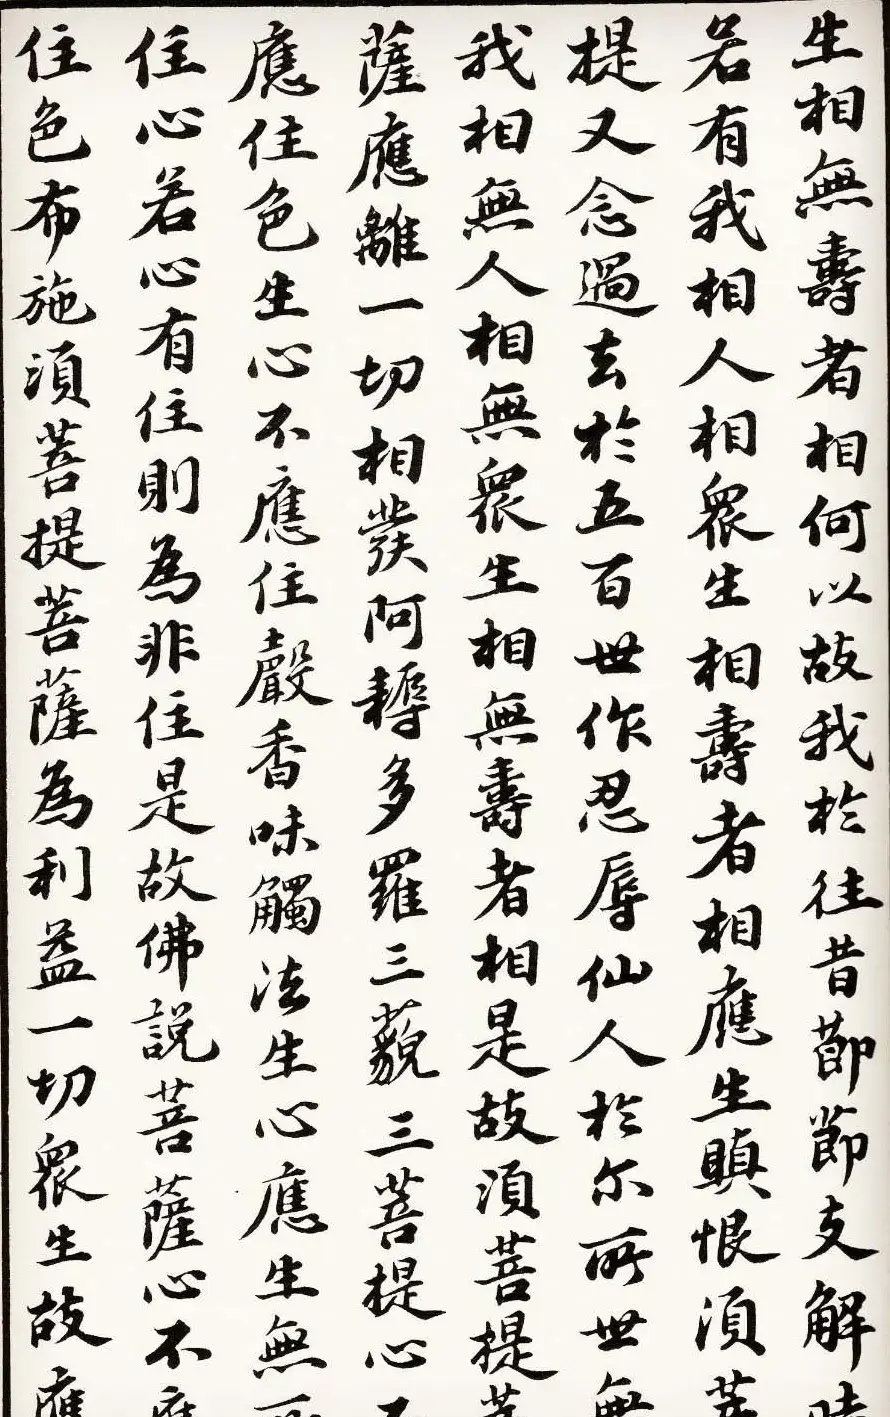 生相無壽者相何以故我於往昔節節支解時
若有我相人相眾生相壽者相應生瞋恨須菩
提又念過去於五百世作忍辱仙人於尔所世無
我相無人相無眾生相無壽者相是故須菩提菩
薩應離一切相發阿耨多羅三藐三菩提心不
應住色生心不應住聲香味觸法生心應生無所
住心若心有住則為非住是故佛說菩薩心不應
住色布施須菩提菩薩為利益一切眾生故應